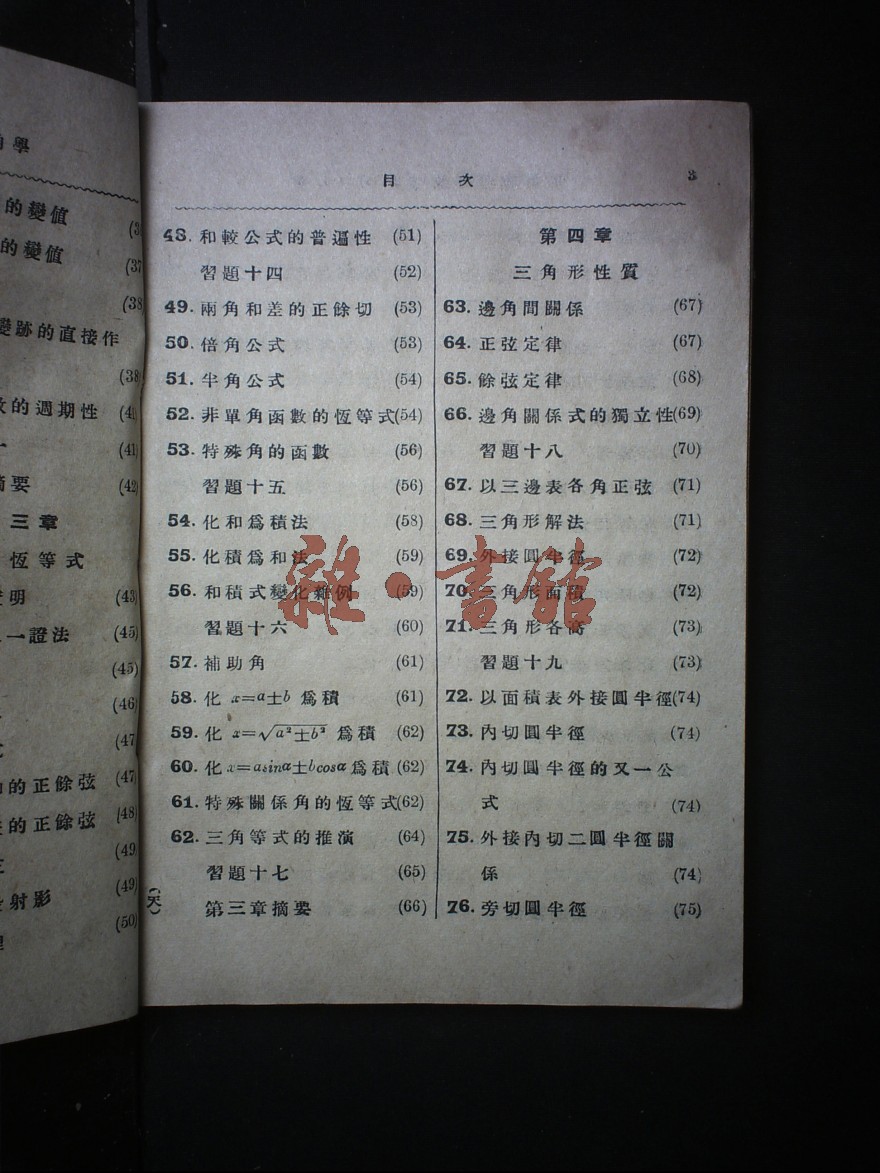 的變值
的變值 (37
(38
變跡的直接作
(38
的週期性 (41
(41
摘要 (42
三章
恆等式
證明 (43
一證法 (45
(45)
(46
(47
的正餘弦 (47
的正餘弦 (48
(49
射影 (49
(50)
目次 3
48. 和較公式的普遍性 (51)
習題十四 (52)
49. 兩角和差的正餘切 (53)
50. 倍角公式 (53)
51. 半角公式 (54)
52. 非單角函數的恆等式 (54)
53. 特殊角的函數 (56)
習題十五 (56)
54. 化和爲積法 (58)
55. 化積爲和法 (59)
56. 和積式變化雜例 (59)
習題十六 (60)
57. 補助角 (61)
58. 化 x=a±b 爲積 (61)
59. 化 x=√a²±b² 爲積 (62)
60. 化x=asinα±bcosα爲積 (62)
61. 特殊關係角的恆等式 (62)
62. 三角等式的推演 (64)
習題十七 (65)
第三章摘要 (66)
第四章
三角形性質
63. 邊角間關係 (67)
64. 正弦定律 (67)
65. 餘弦定律 (68)
66. 邊角關係式的獨立性 (69)
習題十八 (70)
67. 以三邊表各角正弦 (71)
68. 三角形解法 (71)
69. 外接圓半徑 (72)
70. 三角形面積 (72)
71. 三角形各高 (73)
習題十九 (73)
72. 以面積表外接圓半徑 (74)
73. 內切圓半徑 (74)
74. 內切圓半徑的又一公
式 (74)
75. 外接內切二圓半徑關
係 (74)
76. 旁切圓半徑 (75)
雜·書館